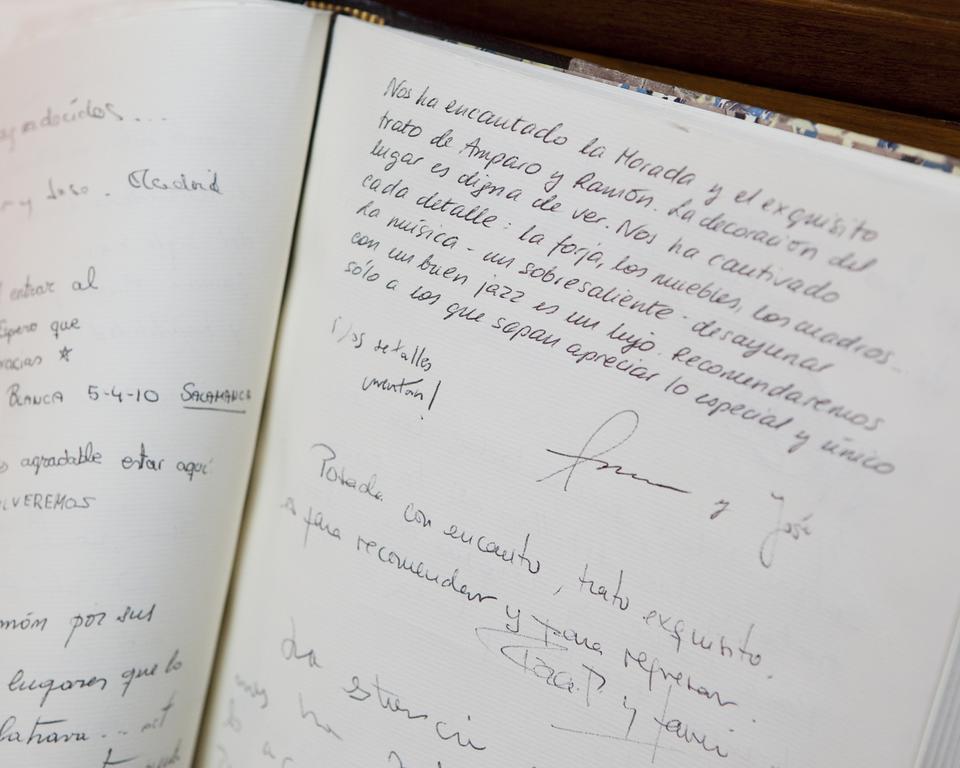 agradecidos...
y Jose. Madrid
entrar al
Espero que
gracias
BLANCA 5-4-10 SALAMANCA
agradable estar aquí
VOLVEREMOS
por sus
lugares que lo
Nos ha encantado la Morada y el exquisito
trato de Amparo y Ramón. La decoración del
lugar es digna de ver. Nos ha cautivado
cada detalle: la forja, los muebles, los cuadros...
La música - un sobresaliente - desayunar
con un buen jazz es un lujo. Recomendaremos
sólo a los que sapan apreciar lo especial y único
¡Los detalles
cuentan!
y José
Posada con encanto, trato exquisito.
es para recomendar y para regresar.
y Javi
La estancia
muy